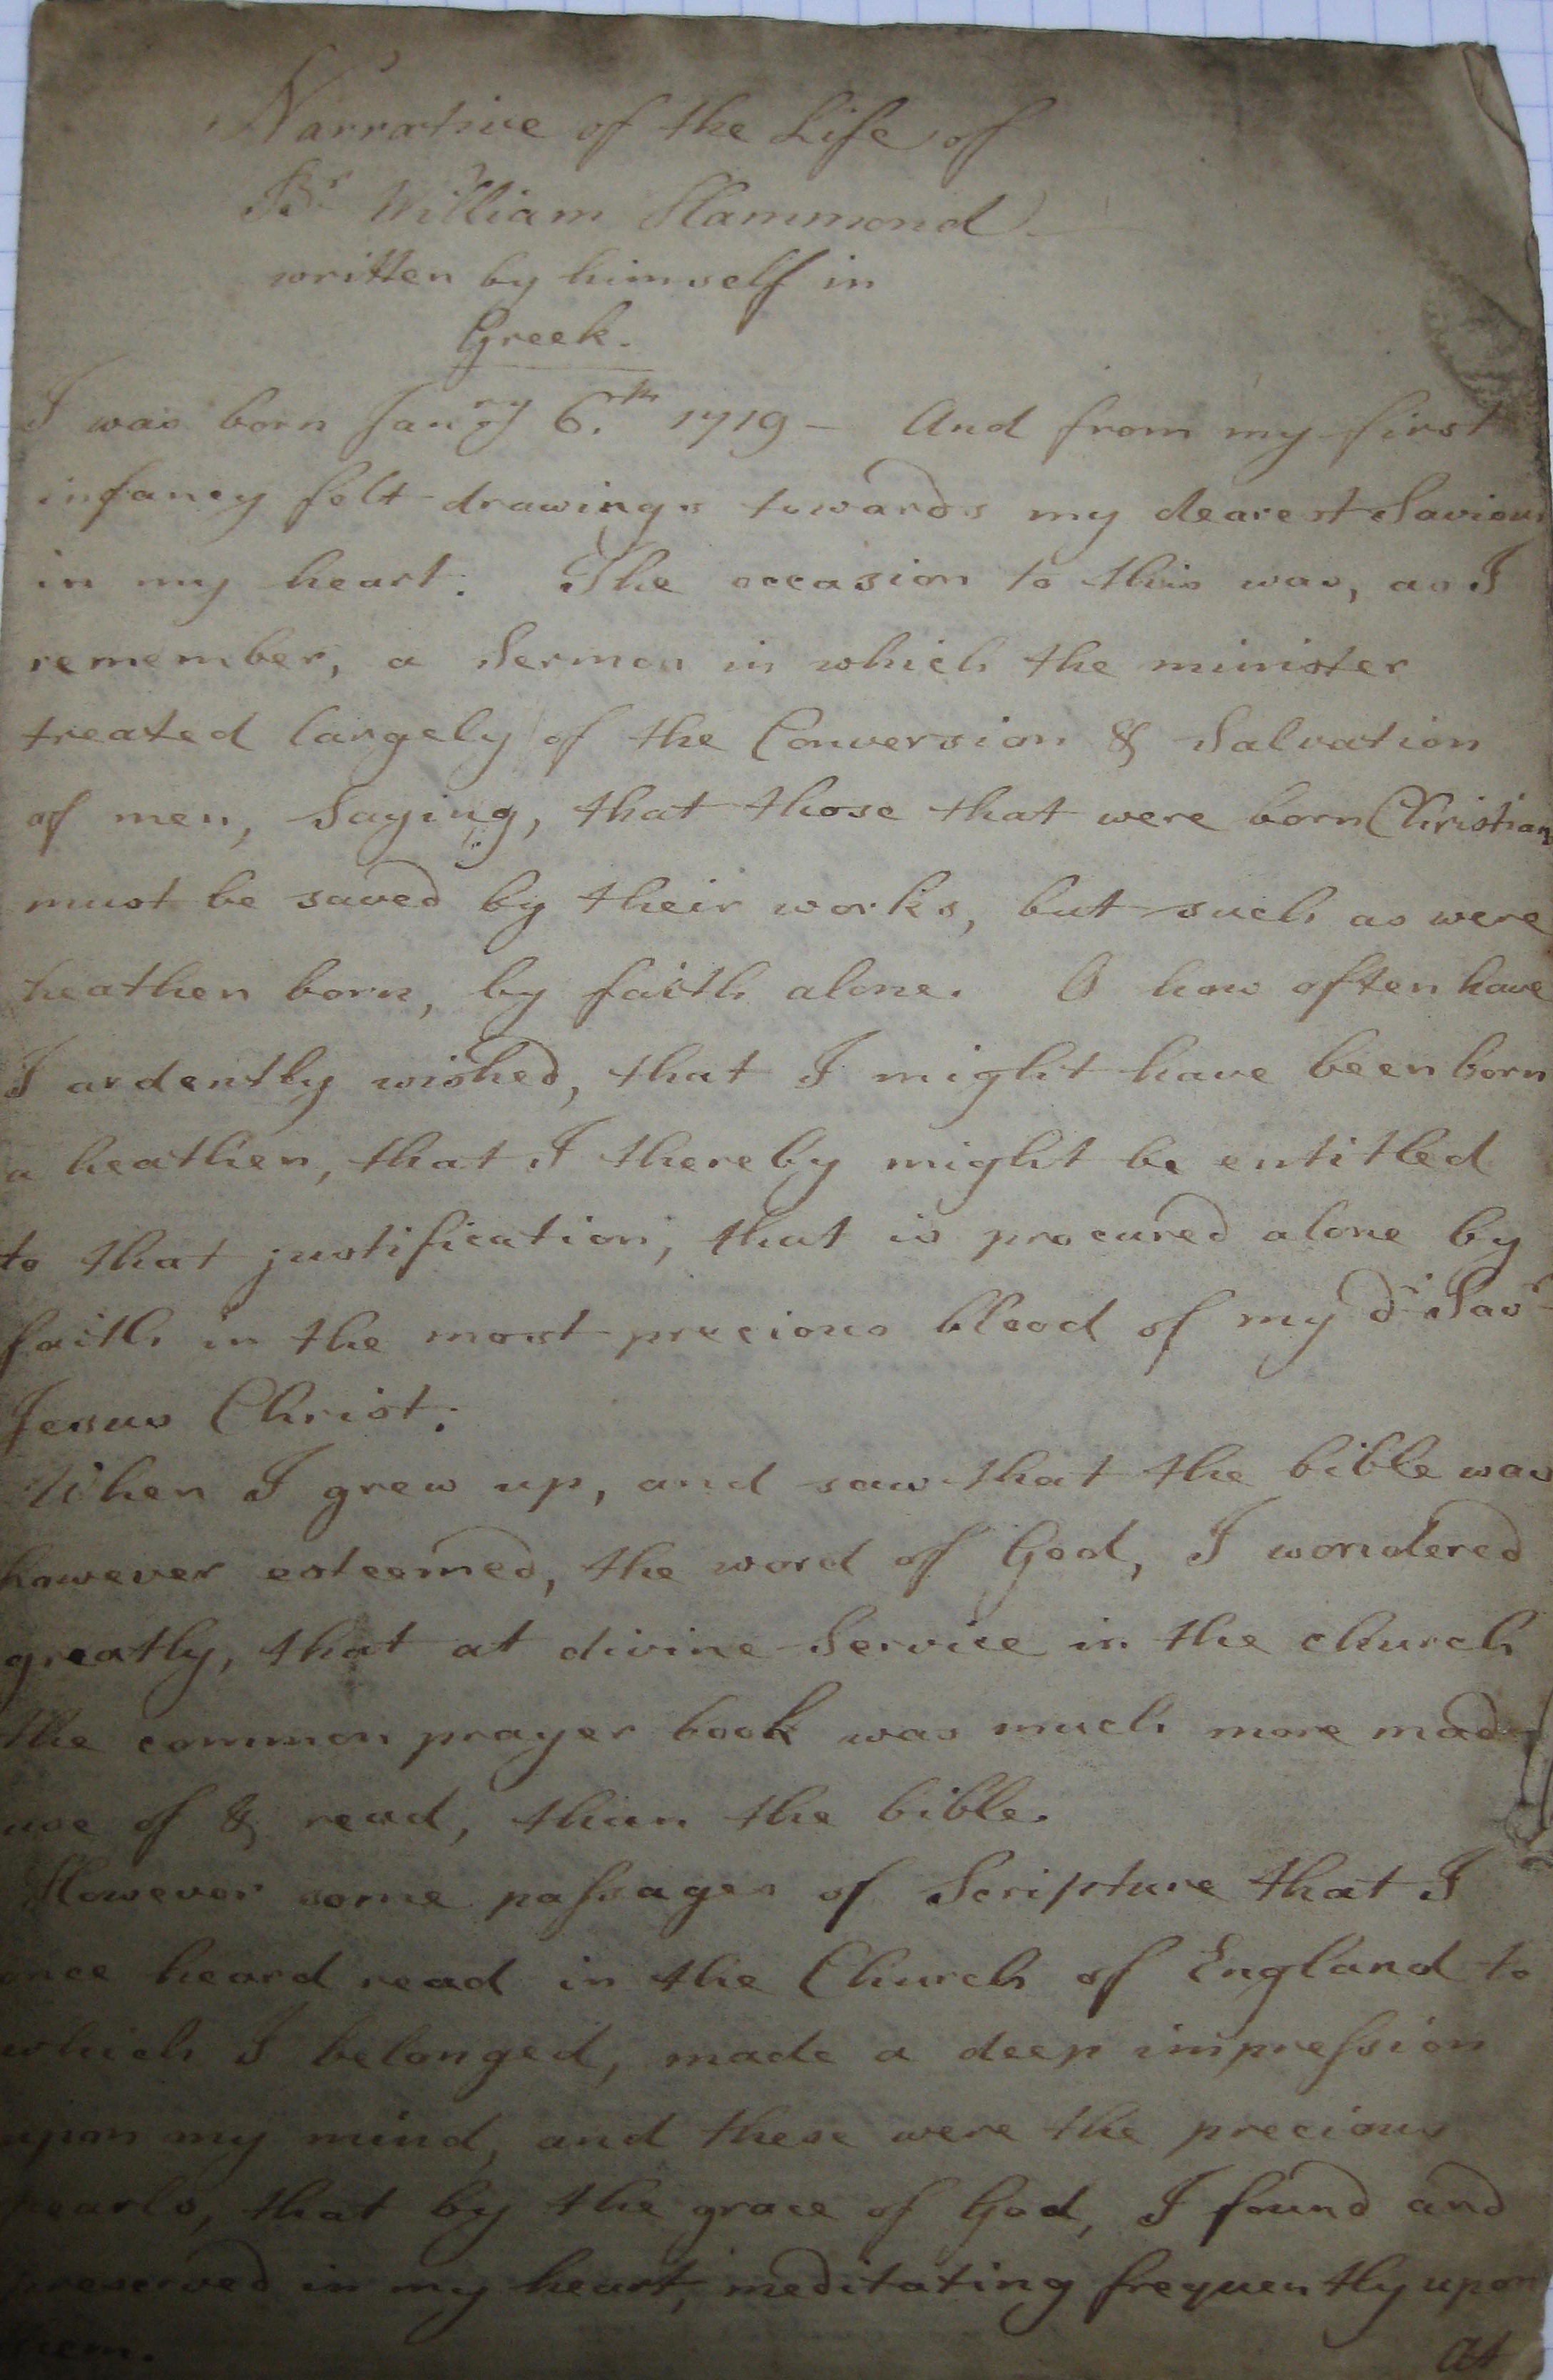 Narrative of the Life of
Br William Hammond
written by himself in
Greek.
I was born Janry 6.th 1719 – And from my first
infancy felt drawings towards my dearest Saviour
in my heart. The occasion to this was, as I
remember, a Sermon in which the minister
treated largely of the Conversion & Salvation
of men, Saying, that those that were born Christian
must be saved by their works, but such as were
heathen born, by faith alone. O how often have
I ardently wished, that I might have been born
a heathen, that I thereby might be entitled
to that justification, that is procured alone by
faith in the most precious blood of my dr Savr
Jesus Christ.
When I grew up, and saw that the bible was
however esteemed, the word of God, I wondered
greatly, that at divine Service in the church
the common prayer book was much more made
use of & read, than the bible.
However some passages of Scripture that I
once heard read in the Church of England to
which I belonged, made a deep impression
upon my mind, and these were the precious
pearls, that by the grace of God, I found and
preserved in my heart, meditating frequently upon
them.
At